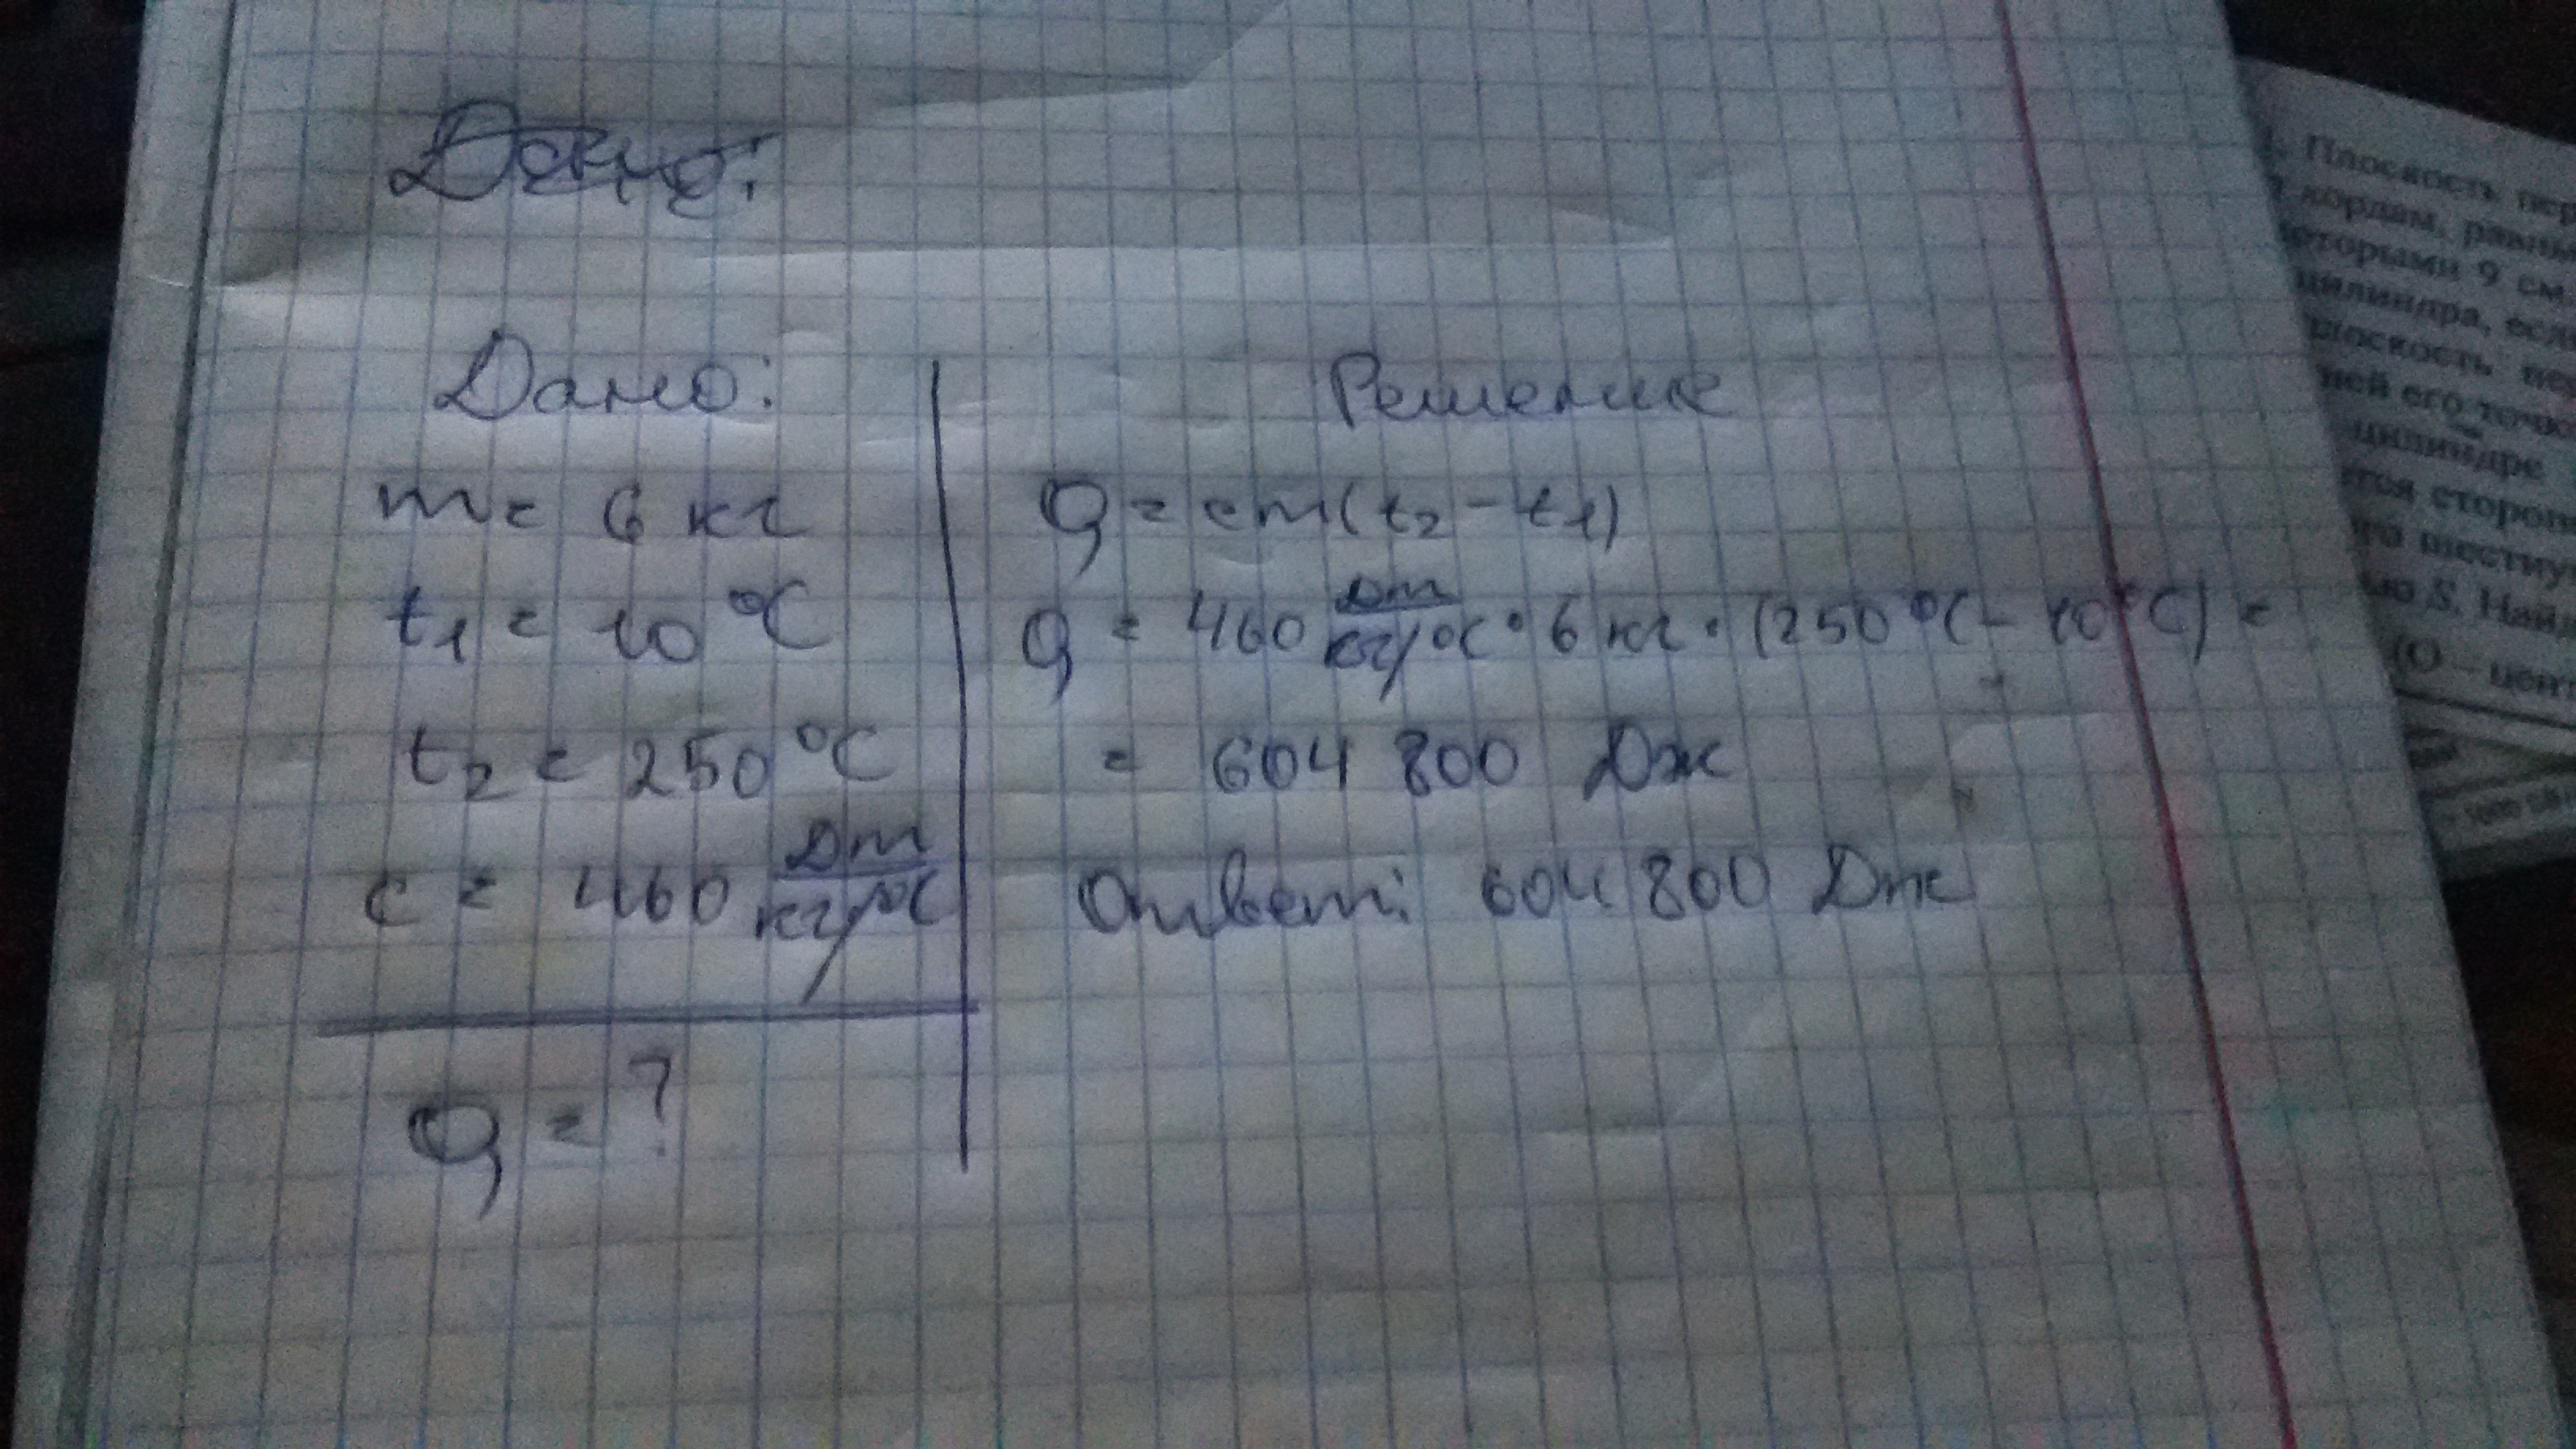 Дано:
Дано:
m = 6 кг
t₁ = 10 °C
t₂ = 250 °C
c = 460 Дж/кг·°C
Q = ?
Решение
Q = cm(t₂ - t₁)
Q = 460 Дж/кг·°C · 6 кг · (250 °C - 10 °C) =
= 604 800 Дж
Ответ: 604 800 Дж
1. Плоскость пер
хордам, равны
которыми 9 см
цилиндра, если
плоскость пе
ней его точк
цилиндре
ется сторон
го шестиу
ью S. Най
(O – цент